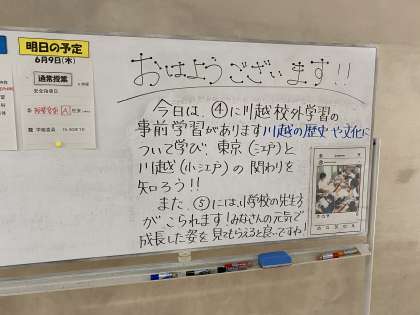 明日の予定
6月9日(木)
通常授業
おはようございます!!
今日は、④に川越校外学習の
事前学習があります川越の歴史や文化に
ついて学び、東京(江戸)と
川越(小江戸)の関わりを
知ろう!!
また、⑤には、小学校の先生方
がこられます!みなさんの元気で
成長した姿を見てもらえると良いですね!